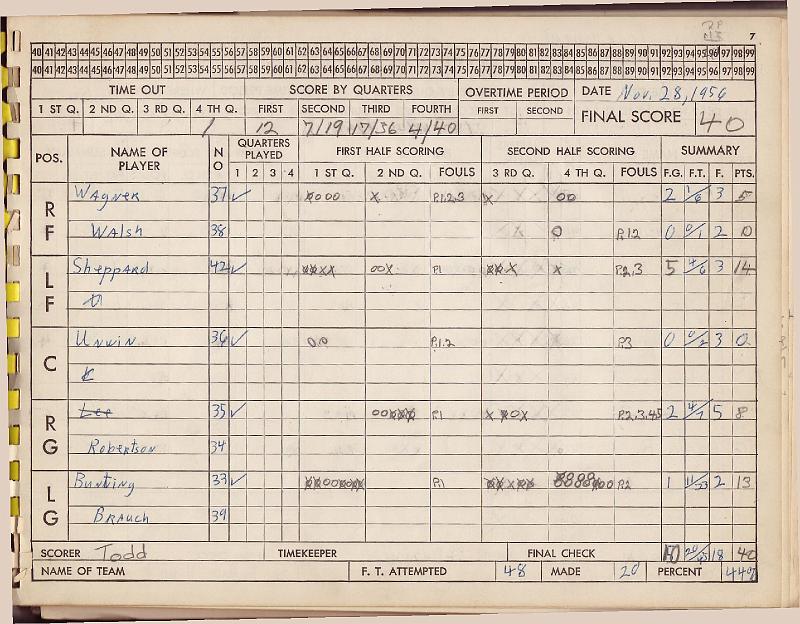 7
40 41 42 43 44 45 46 47 48 49 50 51 52 53 54 55 56 57 58 59 60 61 62 63 64 65 66 67 68 69 70 71 72 73 74 75 76 77 78 79 80 81 82 83 84 85 86 87 88 89 90 91 92 93 94 95 96 97 98 99
40 41 42 43 44 45 46 47 48 49 50 51 52 53 54 55 56 57 58 59 60 61 62 63 64 65 66 67 68 69 70 71 72 73 74 75 76 77 78 79 80 81 82 83 84 85 86 87 88 89 90 91 92 93 94 95 96 97 98 99
TIME OUT SCORE BY QUARTERS OVERTIME PERIOD DATE Nov. 28, 1956
1 ST Q. 2 ND Q. 3 RD Q. 4 TH Q. FIRST SECOND THIRD FOURTH FIRST SECOND FINAL SCORE 40
1 12 7/19 17/36 4/40
POS. NAME OF PLAYER NO QUARTERS PLAYED FIRST HALF SCORING SECOND HALF SCORING SUMMARY
1 2 3 4 1 ST Q. 2 ND Q. FOULS 3 RD Q. 4 TH Q. FOULS F.G. F.T. F. PTS.
RF Wagner 37 ✓ P1,2,3 2 1/6 3 5
Walsh 38 P1,2 0 0/1 2 0
LF Sheppard 42 ✓ P1 P2,3 5 4/6 3 14
C Unwin 36 ✓ P1,2 P3 0 0/2 3 0
RG Lee 35 ✓ P1 P2,3,4,5 2 4/7 5 8
Robertson 34
LG Bunting 33 ✓ P1 P2 1 2 13
Brauch 39
SCORER Todd TIMEKEEPER FINAL CHECK 10 18 40
NAME OF TEAM F. T. ATTEMPTED 48 MADE 20 PERCENT 44%